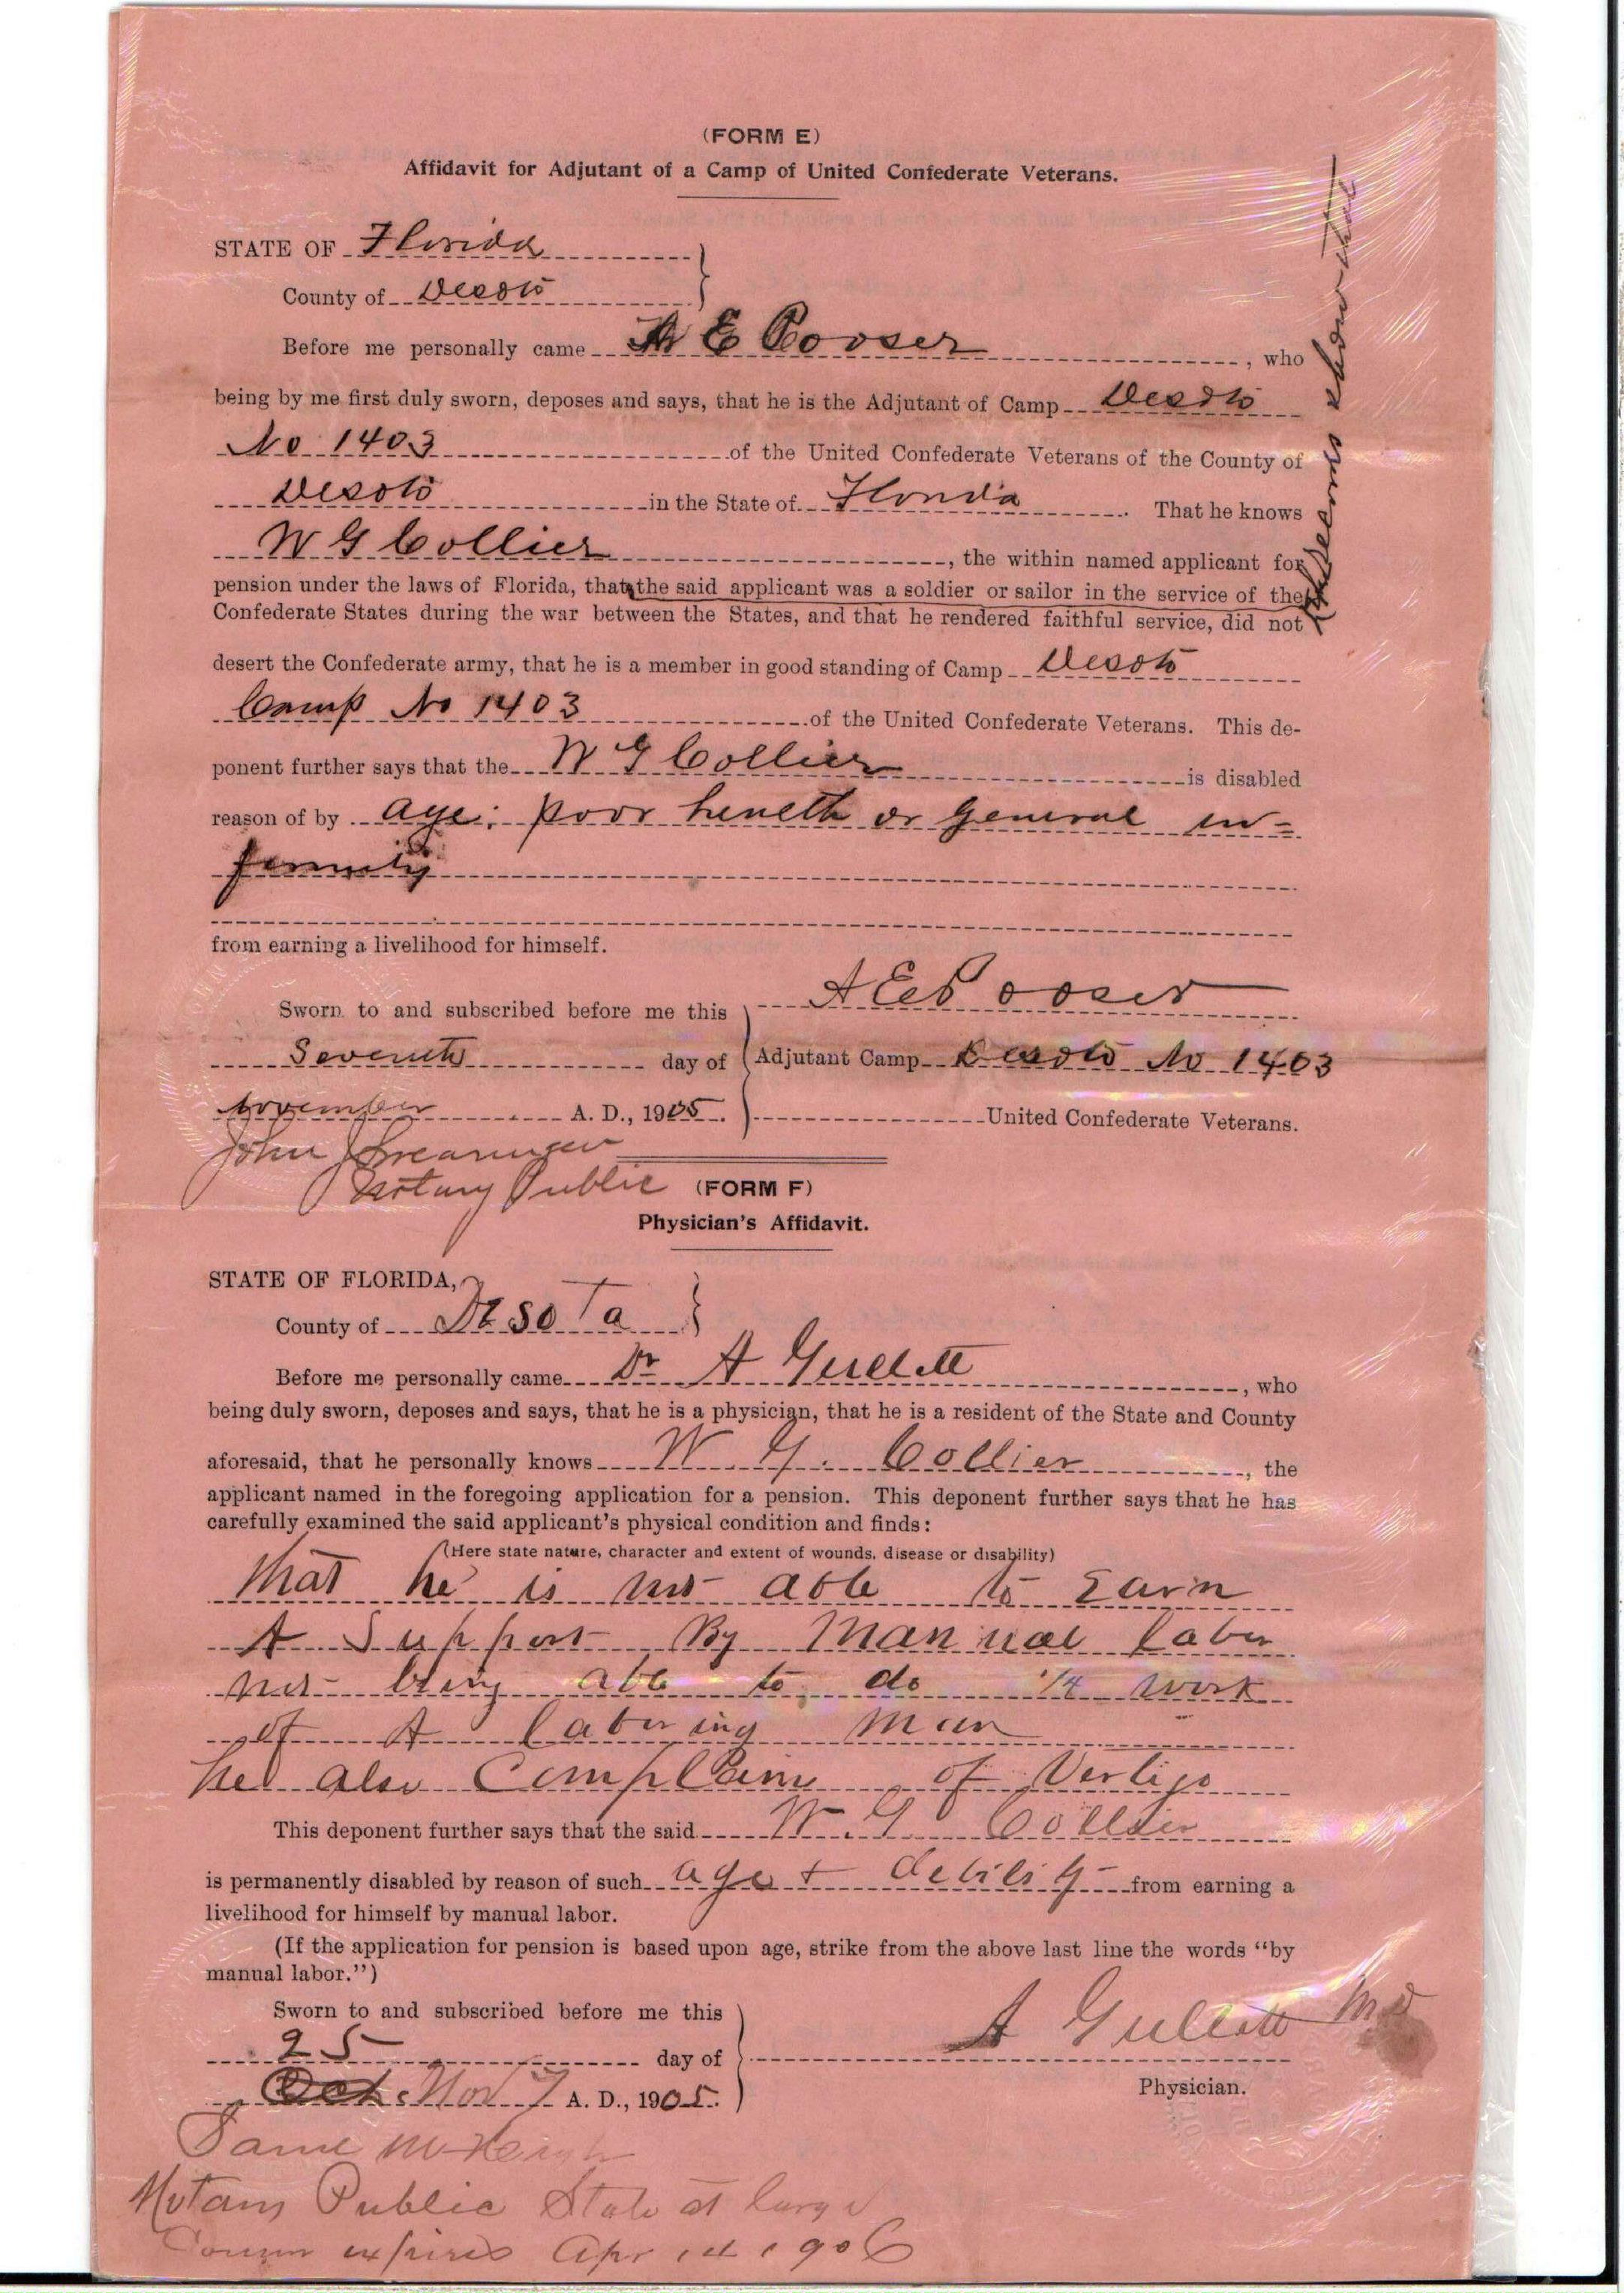 (FORM E)
Affidavit for Adjutant of a Camp of United Confederate Veterans.
STATE OF Florida
County of Desoto
Before me personally came A E Pooser, who
being by me first duly sworn, deposes and says, that he is the Adjutant of Camp Desoto
No 1403 of the United Confederate Veterans of the County of
Desoto in the State of Florida. That he knows
W G Collier, the within named applicant for
pension under the laws of Florida, that the said applicant was a soldier or sailor in the service of the
Confederate States during the war between the States, and that he rendered faithful service, did not
desert the Confederate army, that he is a member in good standing of Camp Desoto
Camp No 1403 of the United Confederate Veterans. This de-
ponent further says that the W G Collier is disabled
reason of by age; poor health or general in=
firmity
from earning a livelihood for himself.
Sworn to and subscribed before me this
Seventh day of
November A. D., 1905.
A E Pooser
Adjutant Camp Desoto No 1403
United Confederate Veterans.
John
Notary Public
show that
(FORM F)
Physician's Affidavit.
STATE OF FLORIDA,
County of DeSoTa
Before me personally came Dr A Gullett, who
being duly sworn, deposes and says, that he is a physician, that he is a resident of the State and County
aforesaid, that he personally knows W. G. Collier, the
applicant named in the foregoing application for a pension. This deponent further says that he has
carefully examined the said applicant's physical condition and finds:
(Here state nature, character and extent of wounds, disease or disability)
that he is not able to Earn
A Support By Manual labor
not being able to do 1/4 work
of A laboring man
he also Complains of Vertigo
This deponent further says that the said W. G Collier
is permanently disabled by reason of such age + debility from earning a
livelihood for himself by manual labor.
(If the application for pension is based upon age, strike from the above last line the words "by
manual labor.")
Sworn to and subscribed before me this
25 day of
Oct. Nov 7 A. D., 1905.
A Gullett MD
Physician.
Notary Public State at large
Comm expires Apr 14 1906